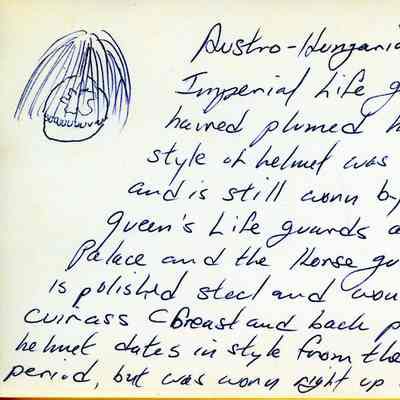 Austro-Hungaria
Imperial Life g
haired plumed h
style of helmet was
and is still worn by
Queen's Life guards a
Palace and the Horse gu
is polished steel and wou
cuirass (breast and back p
helmet dates in style from the
period, but was worn right up